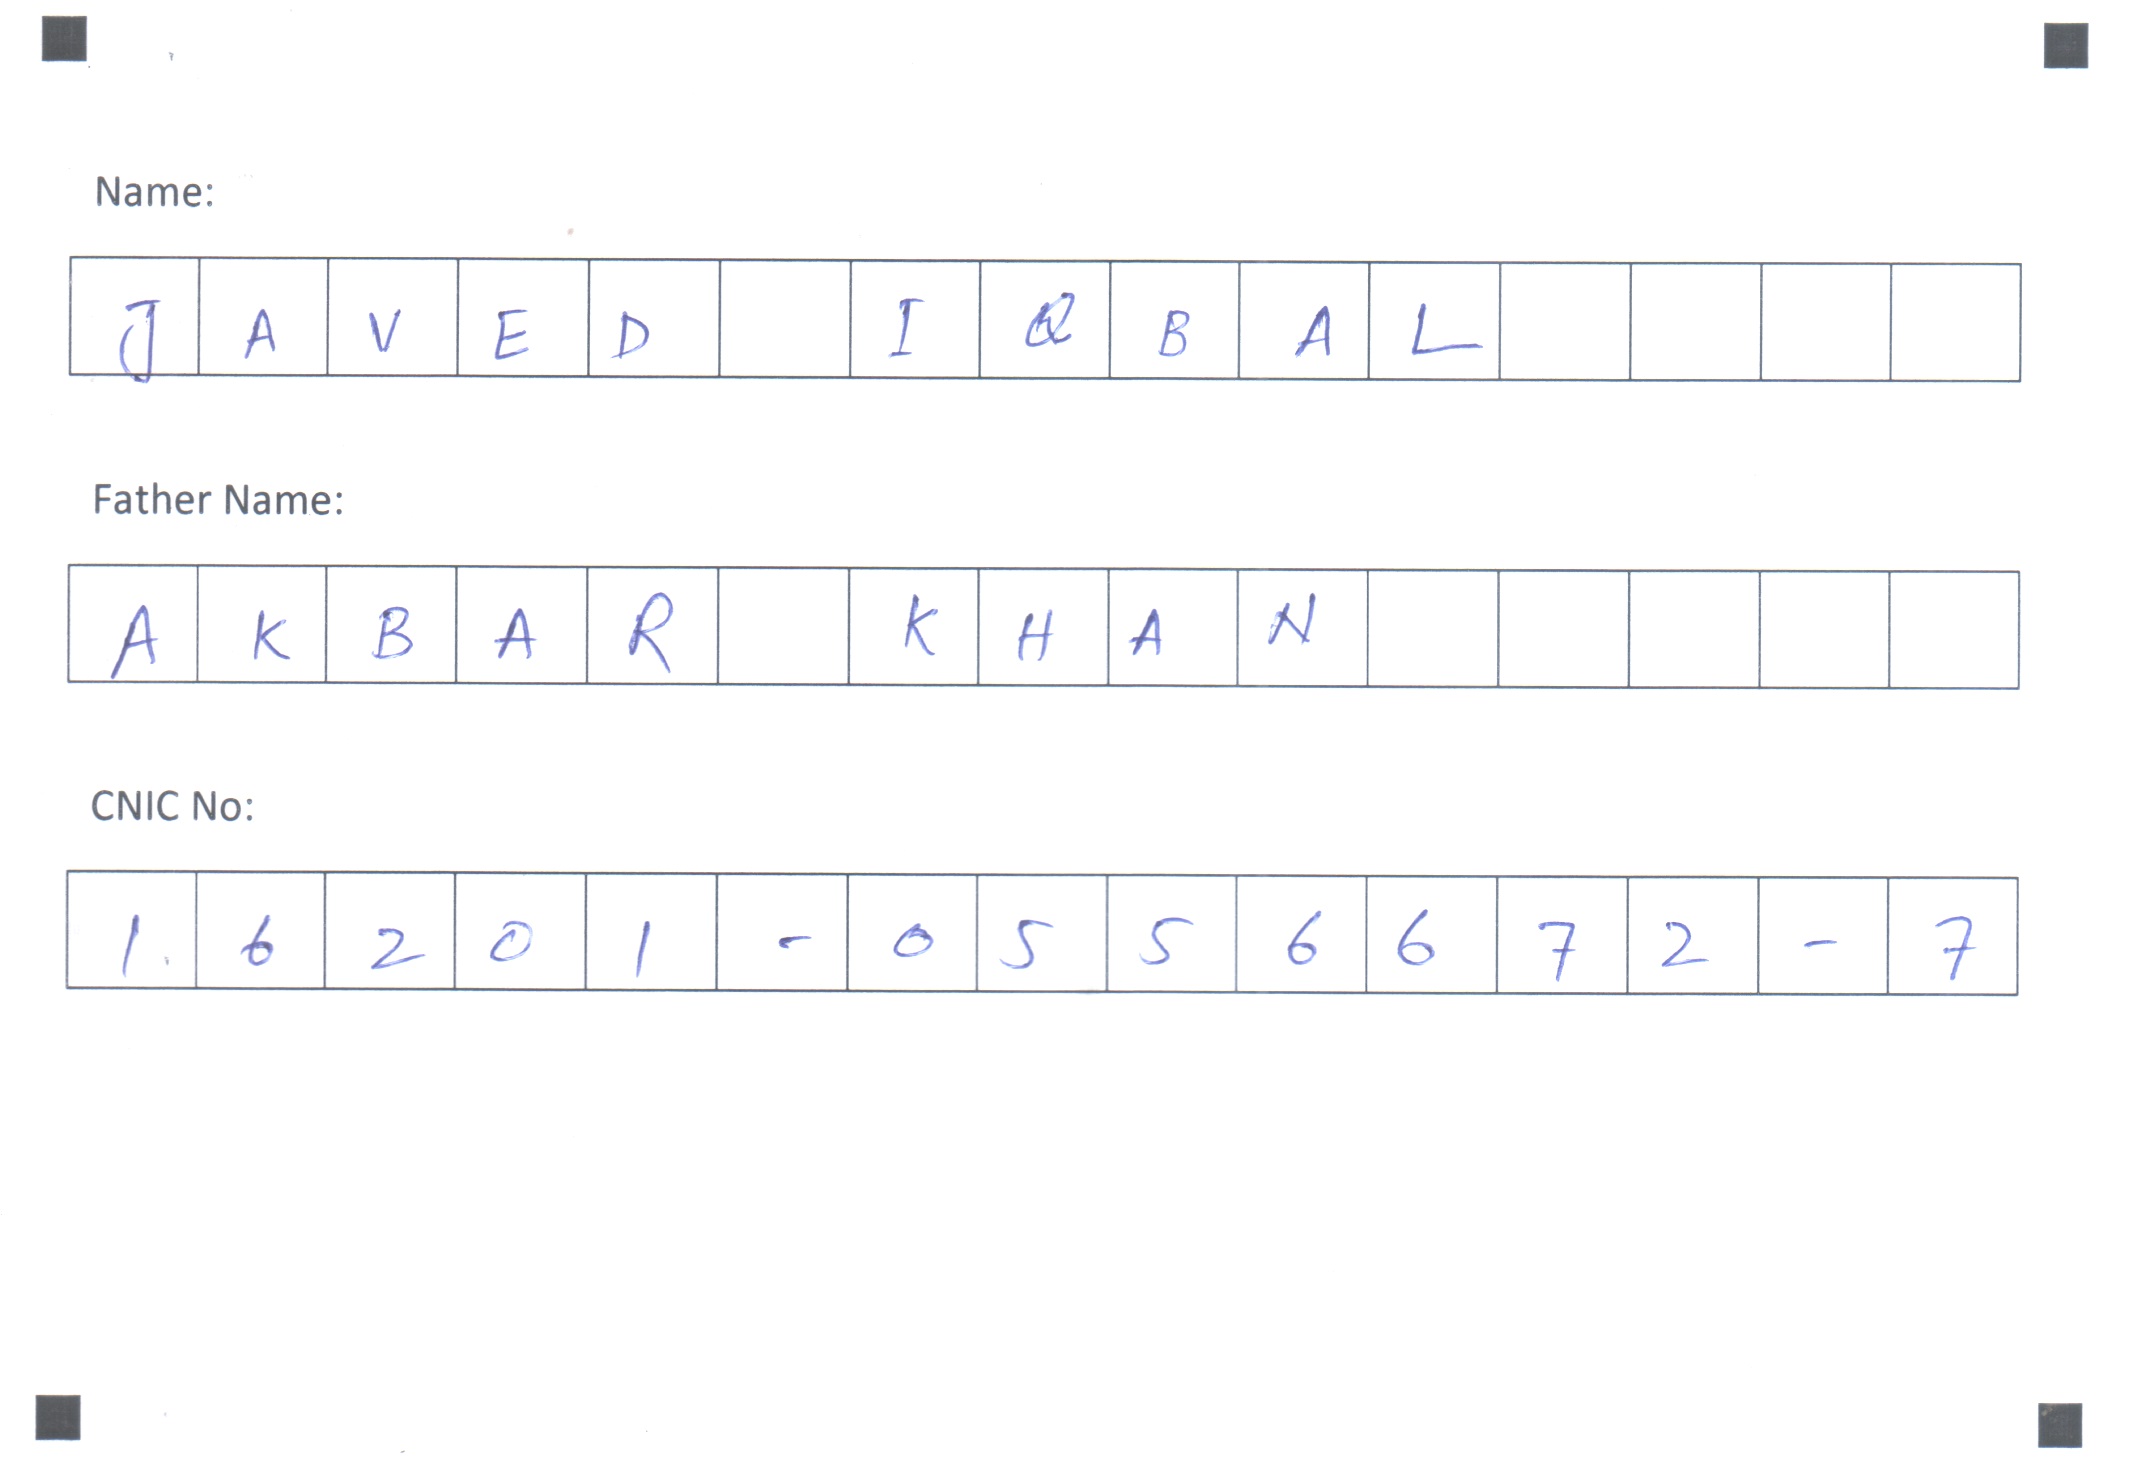 Name:
JAVED IQBAL
Father Name:
AKBAR KHAN
CNIC No:
16201-0556672-7